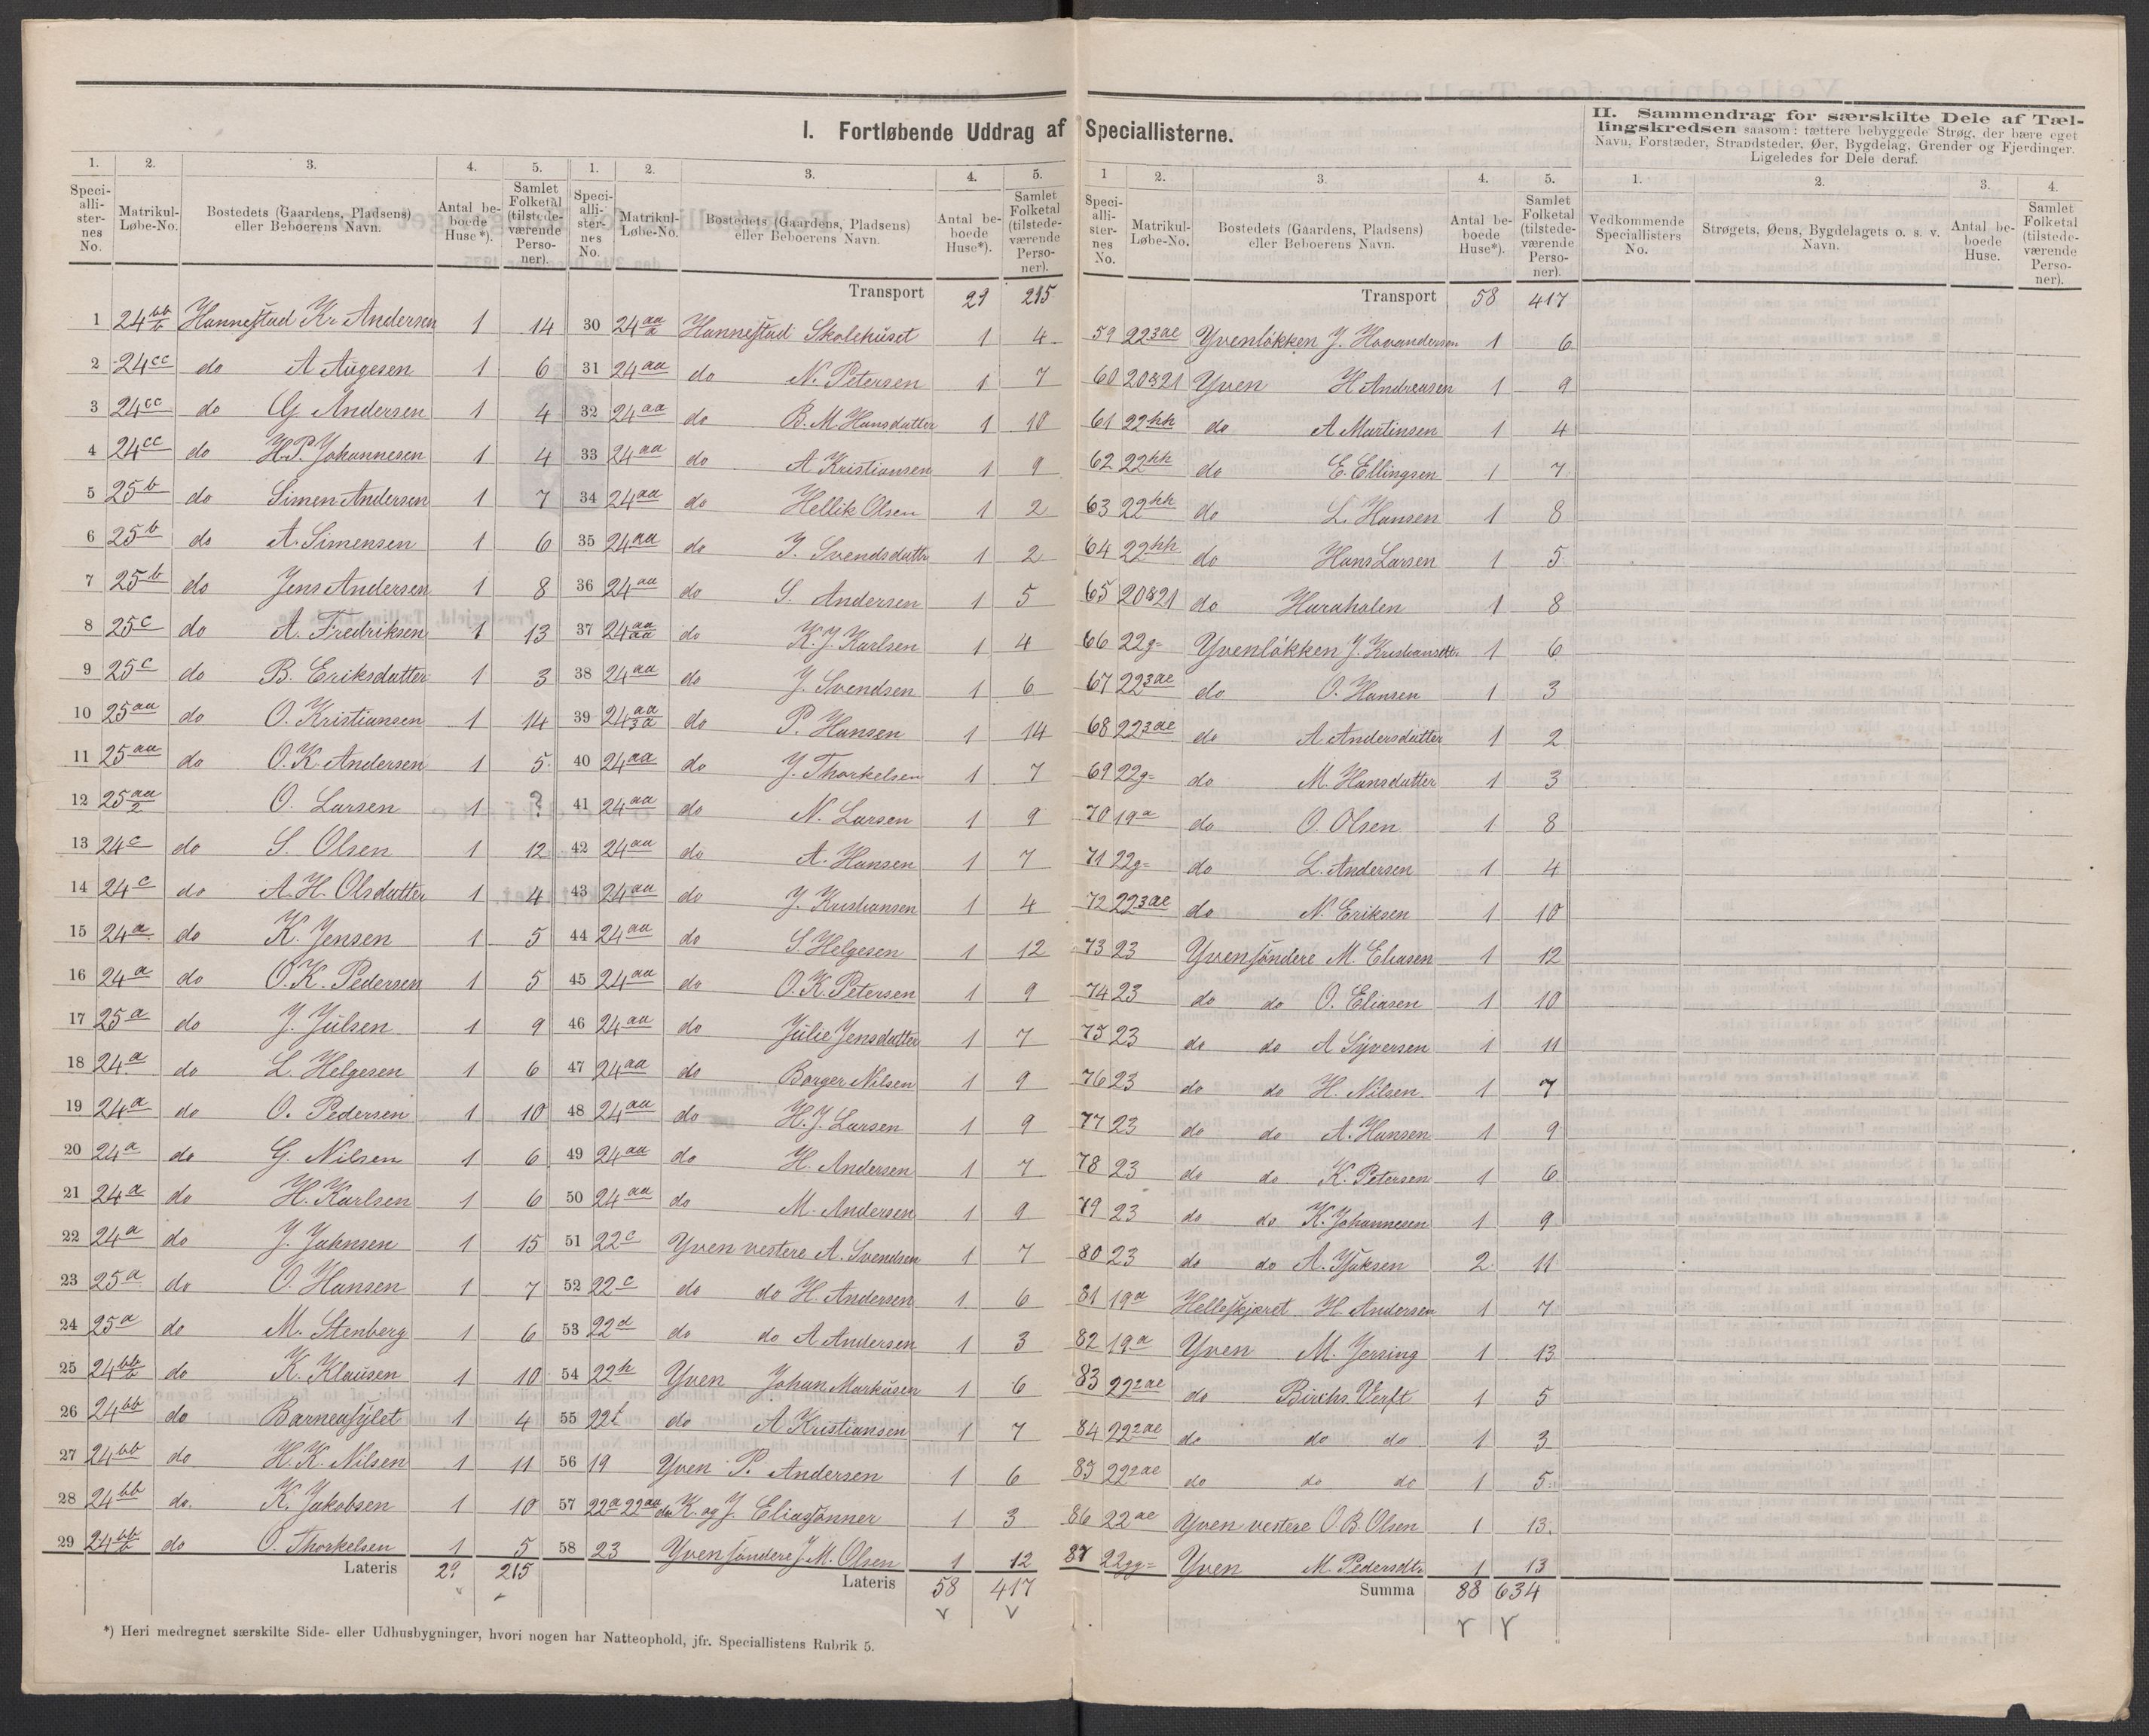 I. Fortløbende Uddrag af Speciallisterne.
1. 2. 3. 4. 5.
Speciallisternes No. Matrikul-Løbe-No. Bostedets (Gaardens, Pladsens) eller Beboerens Navn. Antal beboede Huse*). Samlet Folketal (tilstedeværende Personer).
1 24 bb/b Hannestad Kr. Andersen 1 14
2 24cc do A Augesen 1 6
3 24cc do G Andersen 1 4
4 24cc do H.P. Johannesen 1 4
5 25b do Simen Andersen 1 7
6 25b do A. Simensen 1 6
7 25b do Jens Andersen 1 8
8 25c do A. Fredriksen 1 13
9 25c do B. Eriksdatter 1 3
10 25aa do O. Kristiansen 1 14
11 25aa do O.K. Andersen 1 5
12 25 aa/2 O. Larsen 1 ?
13 24c do S. Olsen 1 12
14 24c do A.H. Olsdatter 1 4
15 24a do K. Jensen 1 5
16 24a do O.K. Pedersen 1 5
17 25a do J. Julsen 1 9
18 24a do L. Helgesen 1 6
19 24a do O. Pedersen 1 10
20 24a do G. Nilsen 1 6
21 24a do H. Karlsen 1 6
22 24a do J. Jahnsen 1 15
23 25a do O. Hansen 1 7
24 25a do M. Stenberg 1 6
25 24 bb/b do K. Klausen 1 10
26 24bb do Barneasylet 1 4
27 24bb do H.K. Nilsen 1 11
28 24bb do. K. Jakobsen 1 10
29 24 bb/b do O. Thorkelsen 1 5
Lateris 29 215
1. 2. 3. 4. 5.
Speciallisternes No. Matrikul-Løbe-No. Bostedets (Gaardens, Pladsens) eller Beboerens Navn. Antal beboede Huse*). Samlet Folketal (tilstedeværende Personer).
Transport 29 215
30 24 aa/a Hannestad Skolehuset 1 4
31 24aa do N. Petersen 1 7
32 24aa do B.M. Hansdatter 1 10
33 24aa do A Kristiansen 1 9
34 24aa do Hellik Olsen 1 2
35 24aa do J. Svendsdattr 1 2
36 24aa do S. Andersen 1 5
37 24 aa/aa do K.J. Karlsen 1 4
38 24aa do J. Svendsen 1 6
39 24 aa/3a do P. Hansen 1 14
40 24aa do J. Thorkelsen 1 7
41 24aa do N. Larsen 1 9
42 24aa do A. Hansen 1 7
43 24aa do J. Kristiansen 1 4
44 24aa do S Helgesen 1 12
45 24aa do O.K. Petersen 1 9
46 24aa do Julie Jensdatter 1 7
47 24aa do Borger Nilsen 1 9
48 24aa do H.J. Larsen 1 9
49 24aa do H. Andersen 1 7
50 24aa do M. Andersen 1 9
51 22c Yven vestere A. Svendsen 1 7
52 22c do do H. Andersen 1 6
53 22d do do A Andersen 1 3
54 22h Yven Johan Markusen 1 6
55 22t do A Kristiansen 1 7
56 19 Yven P. Andersen 1 6
57 22a 22aa do K. og J. Eliassønner 1 3
58 23 Yven søndere J M. Olsen 1 12
Lateris 58 417
*) Heri medregnet særskilte Side- eller Udhusbygninger, hvori nogen har Natteophold, jfr. Speciallistens Rubrik 5.
1 2. 3. 4. 5.
Speciallisternes No. Matrikul-Løbe-No. Bostedets (Gaardens, Pladsens) eller Beboerens Navn. Antal beboede Huse*). Samlet Folketal (tilstedeværende Personer).
Transport 58 417
59 223ae Yvenløkken J. Havandersen 1 6
60 20&21 Yven H Andreasen 1 9
61 22hh do A Martinsen 1 4
62 22hh do E. Ellingsen 1 7
63 22hh do L. Hansen 1 8
64 22hh do Hans Larsen 1 5
65 20&21 do Haraholen 1 8
66 22g= Yvenløkken J. Kristiansdtr. 1 6
67 223ae do O. Hansen 1 3
68 223ae do A Andersdatter 1 2
69 22g= do M. Hansdatter 1 3
70 19a do O. Olsen 1 8
71 22g= do L. Andersen 1 4
72 223ae do N. Eriksen 1 10
73 23 Yven søndere M. Eliasen 1 12
74 23 do do O. Eliasen 1 10
75 23 do do A Syversen 1 11
76 23 do do H. Nilsen 1 7
77 23 do do A. Hansen 1 9
78 23 do do K. Petersen 1 6
79 23 do do K. Johannesen 1 9
80 23 do do A. Isaksen 2 11
81 19a Helleskjæret H Andersen 1 7
82 19a Yven M. Jersing 1 13
83 222ae do Birchs Verft 1 5
84 222ae do do do 1 3
85 222ae do do do 1 5
86 22ae Yven vestere O.B. Olsen 1 13
87 22gg= Yven M. Pedersdtr 1 13
Summa 88 634
II. Sammendrag for særskilte Dele af Tællingskredsen saasom: tættere bebyggede Strøg, der bære eget
Navn, Forstæder, Strandsteder, Øer, Bygdelag, Grender og Fjerdinger.
Ligeledes for Dele deraf.
1. 2. 3. 4.
Vedkommende Speciallisters No. Strøgets, Øens, Bygdelagets o. s. v. Navn. Antal beboede Huse. Samlet Folketal (tilstedeværende Personer).